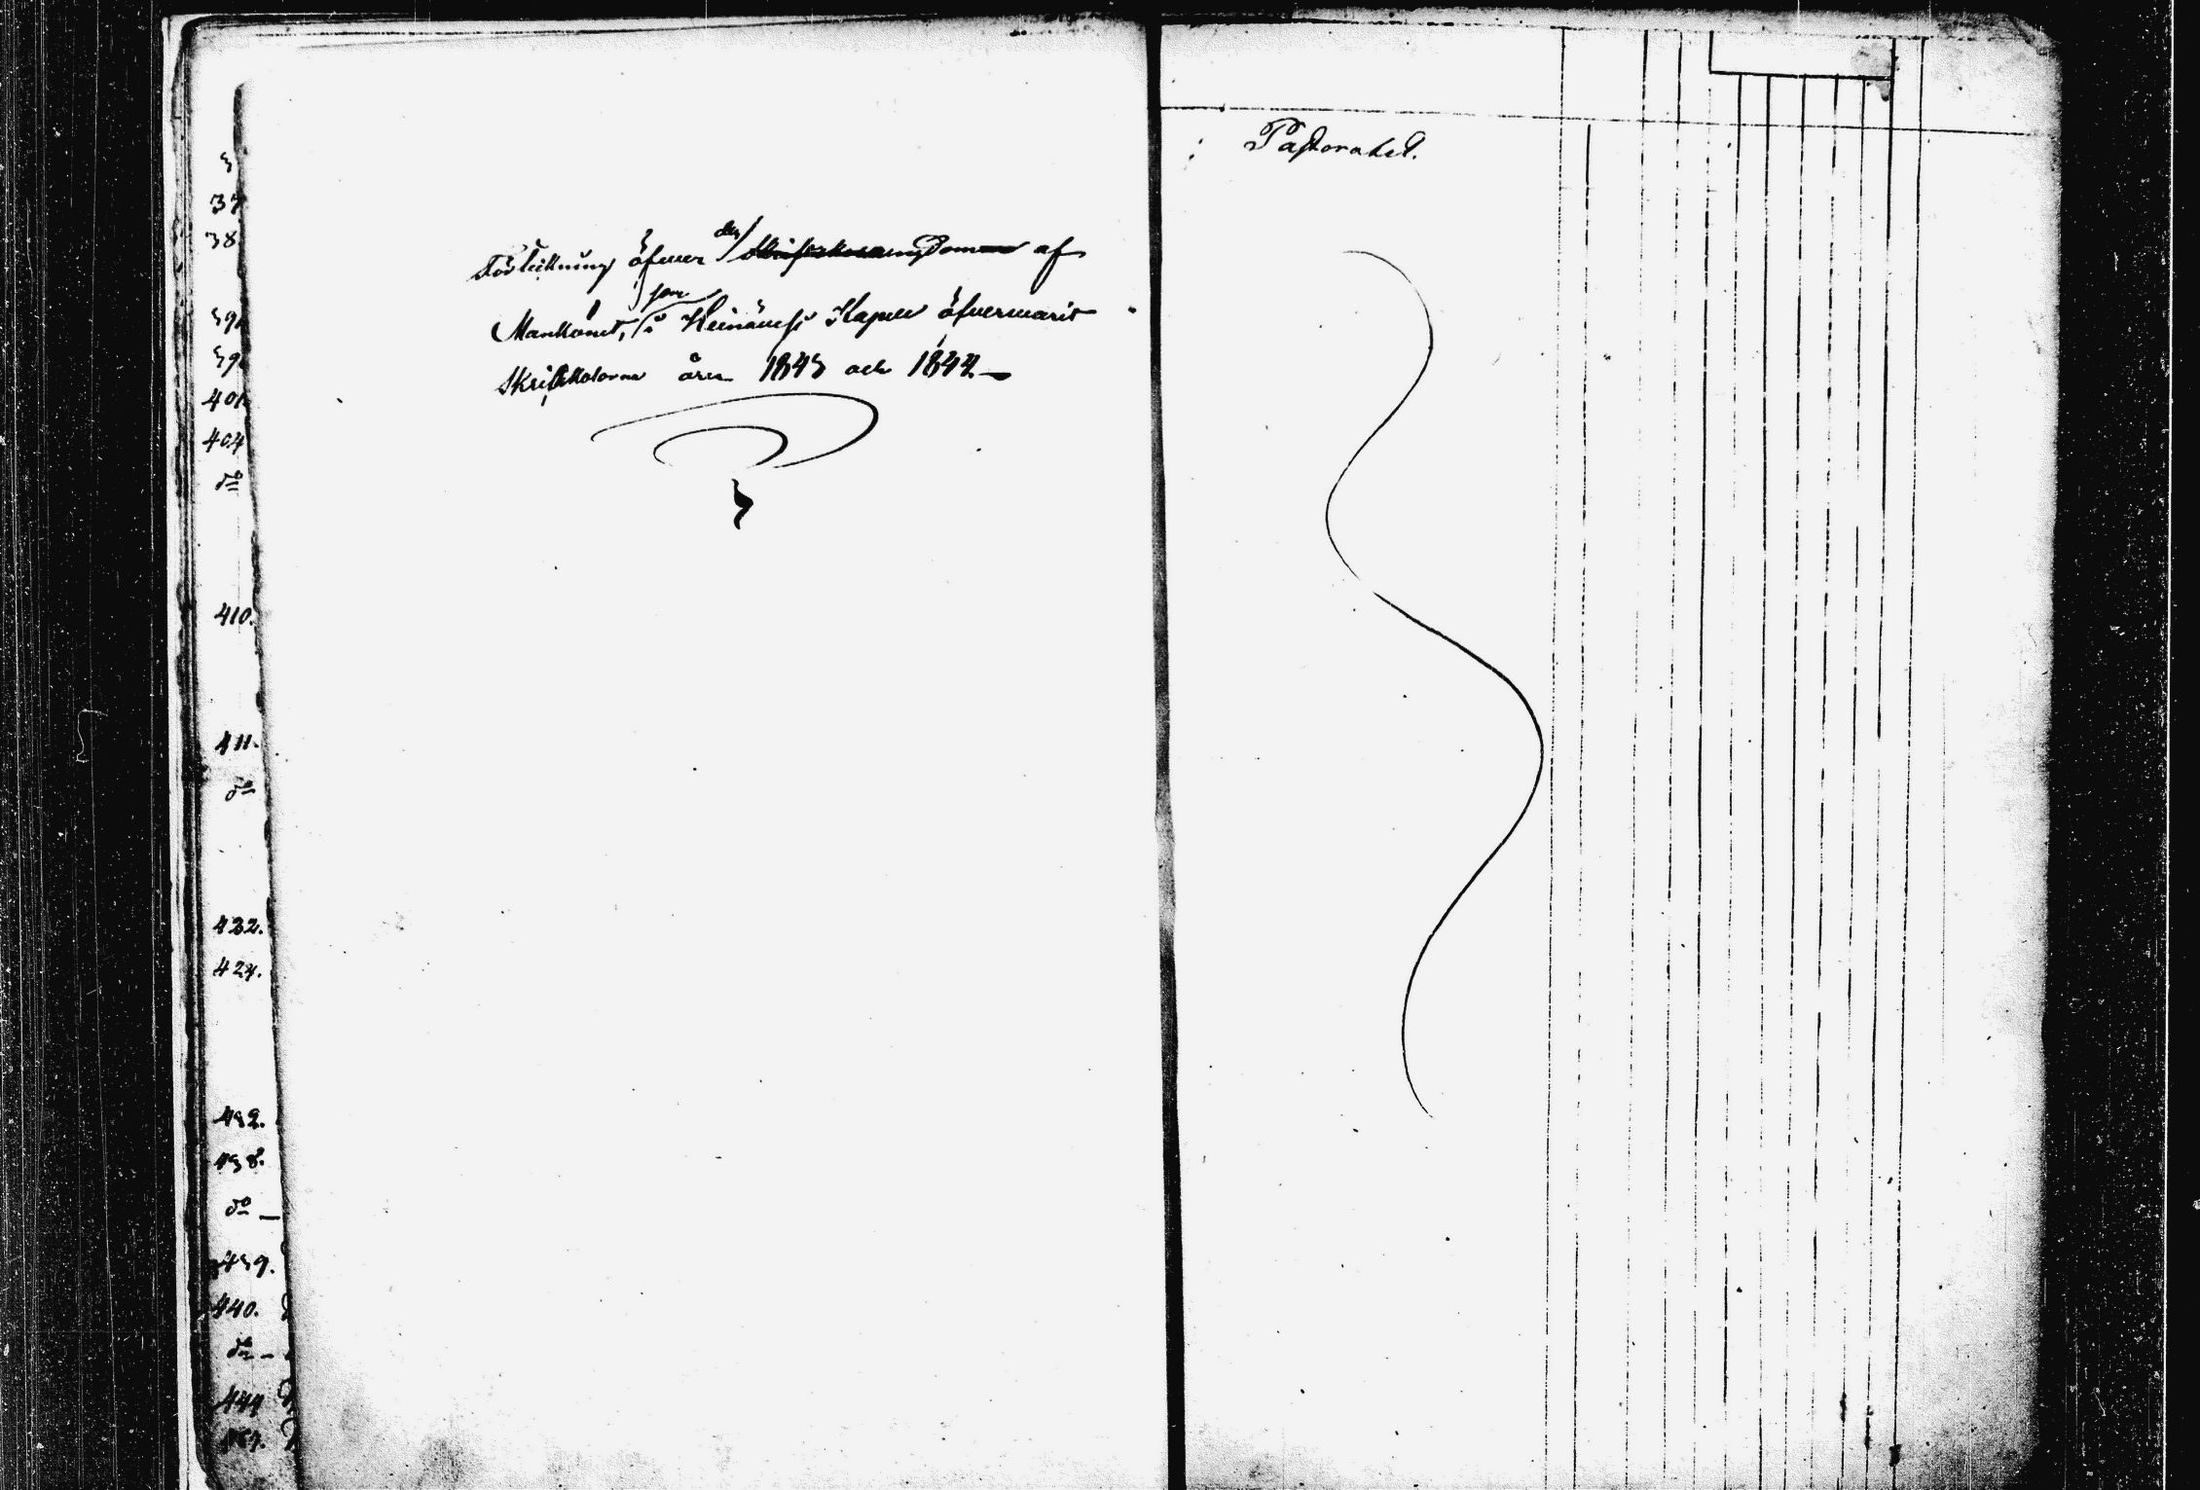 37
38
401.
404
do
410.
411.
do
422.
424.
432.
438.
do —
439.
440.
do —
444
Förteckning öfver den ungdomen af
Mankönet, som i Heinävesi Kapell öfvervarit
Skriftskolorna åren 1843 och 1844. —
Pastoratet.